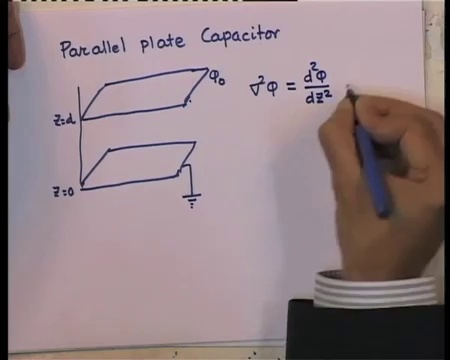 Parallel plate Capacitor
φ₀
∇²φ = d²φ/dz²
z=d
z=0